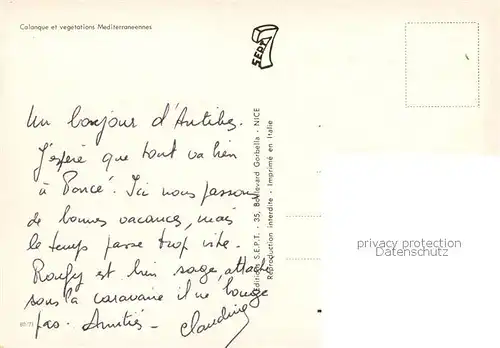 Calanque et vegetations Mediterraneennes
SEPT
Un bonjour d'Antibes.
J'espère que tout va bien
à Poncé. Ici nous passons
de bonnes vacances, mais
le temps passe trop vite.
est bien sage, attaché
sous la caravane il ne bouge
pas. Amitiés -
Claudine
Editions S.E.P.T. - 35, Boulevard Gorbella - NICE
Reproduction interdite - Imprimé en Italie
privacy protection
Datenschutz